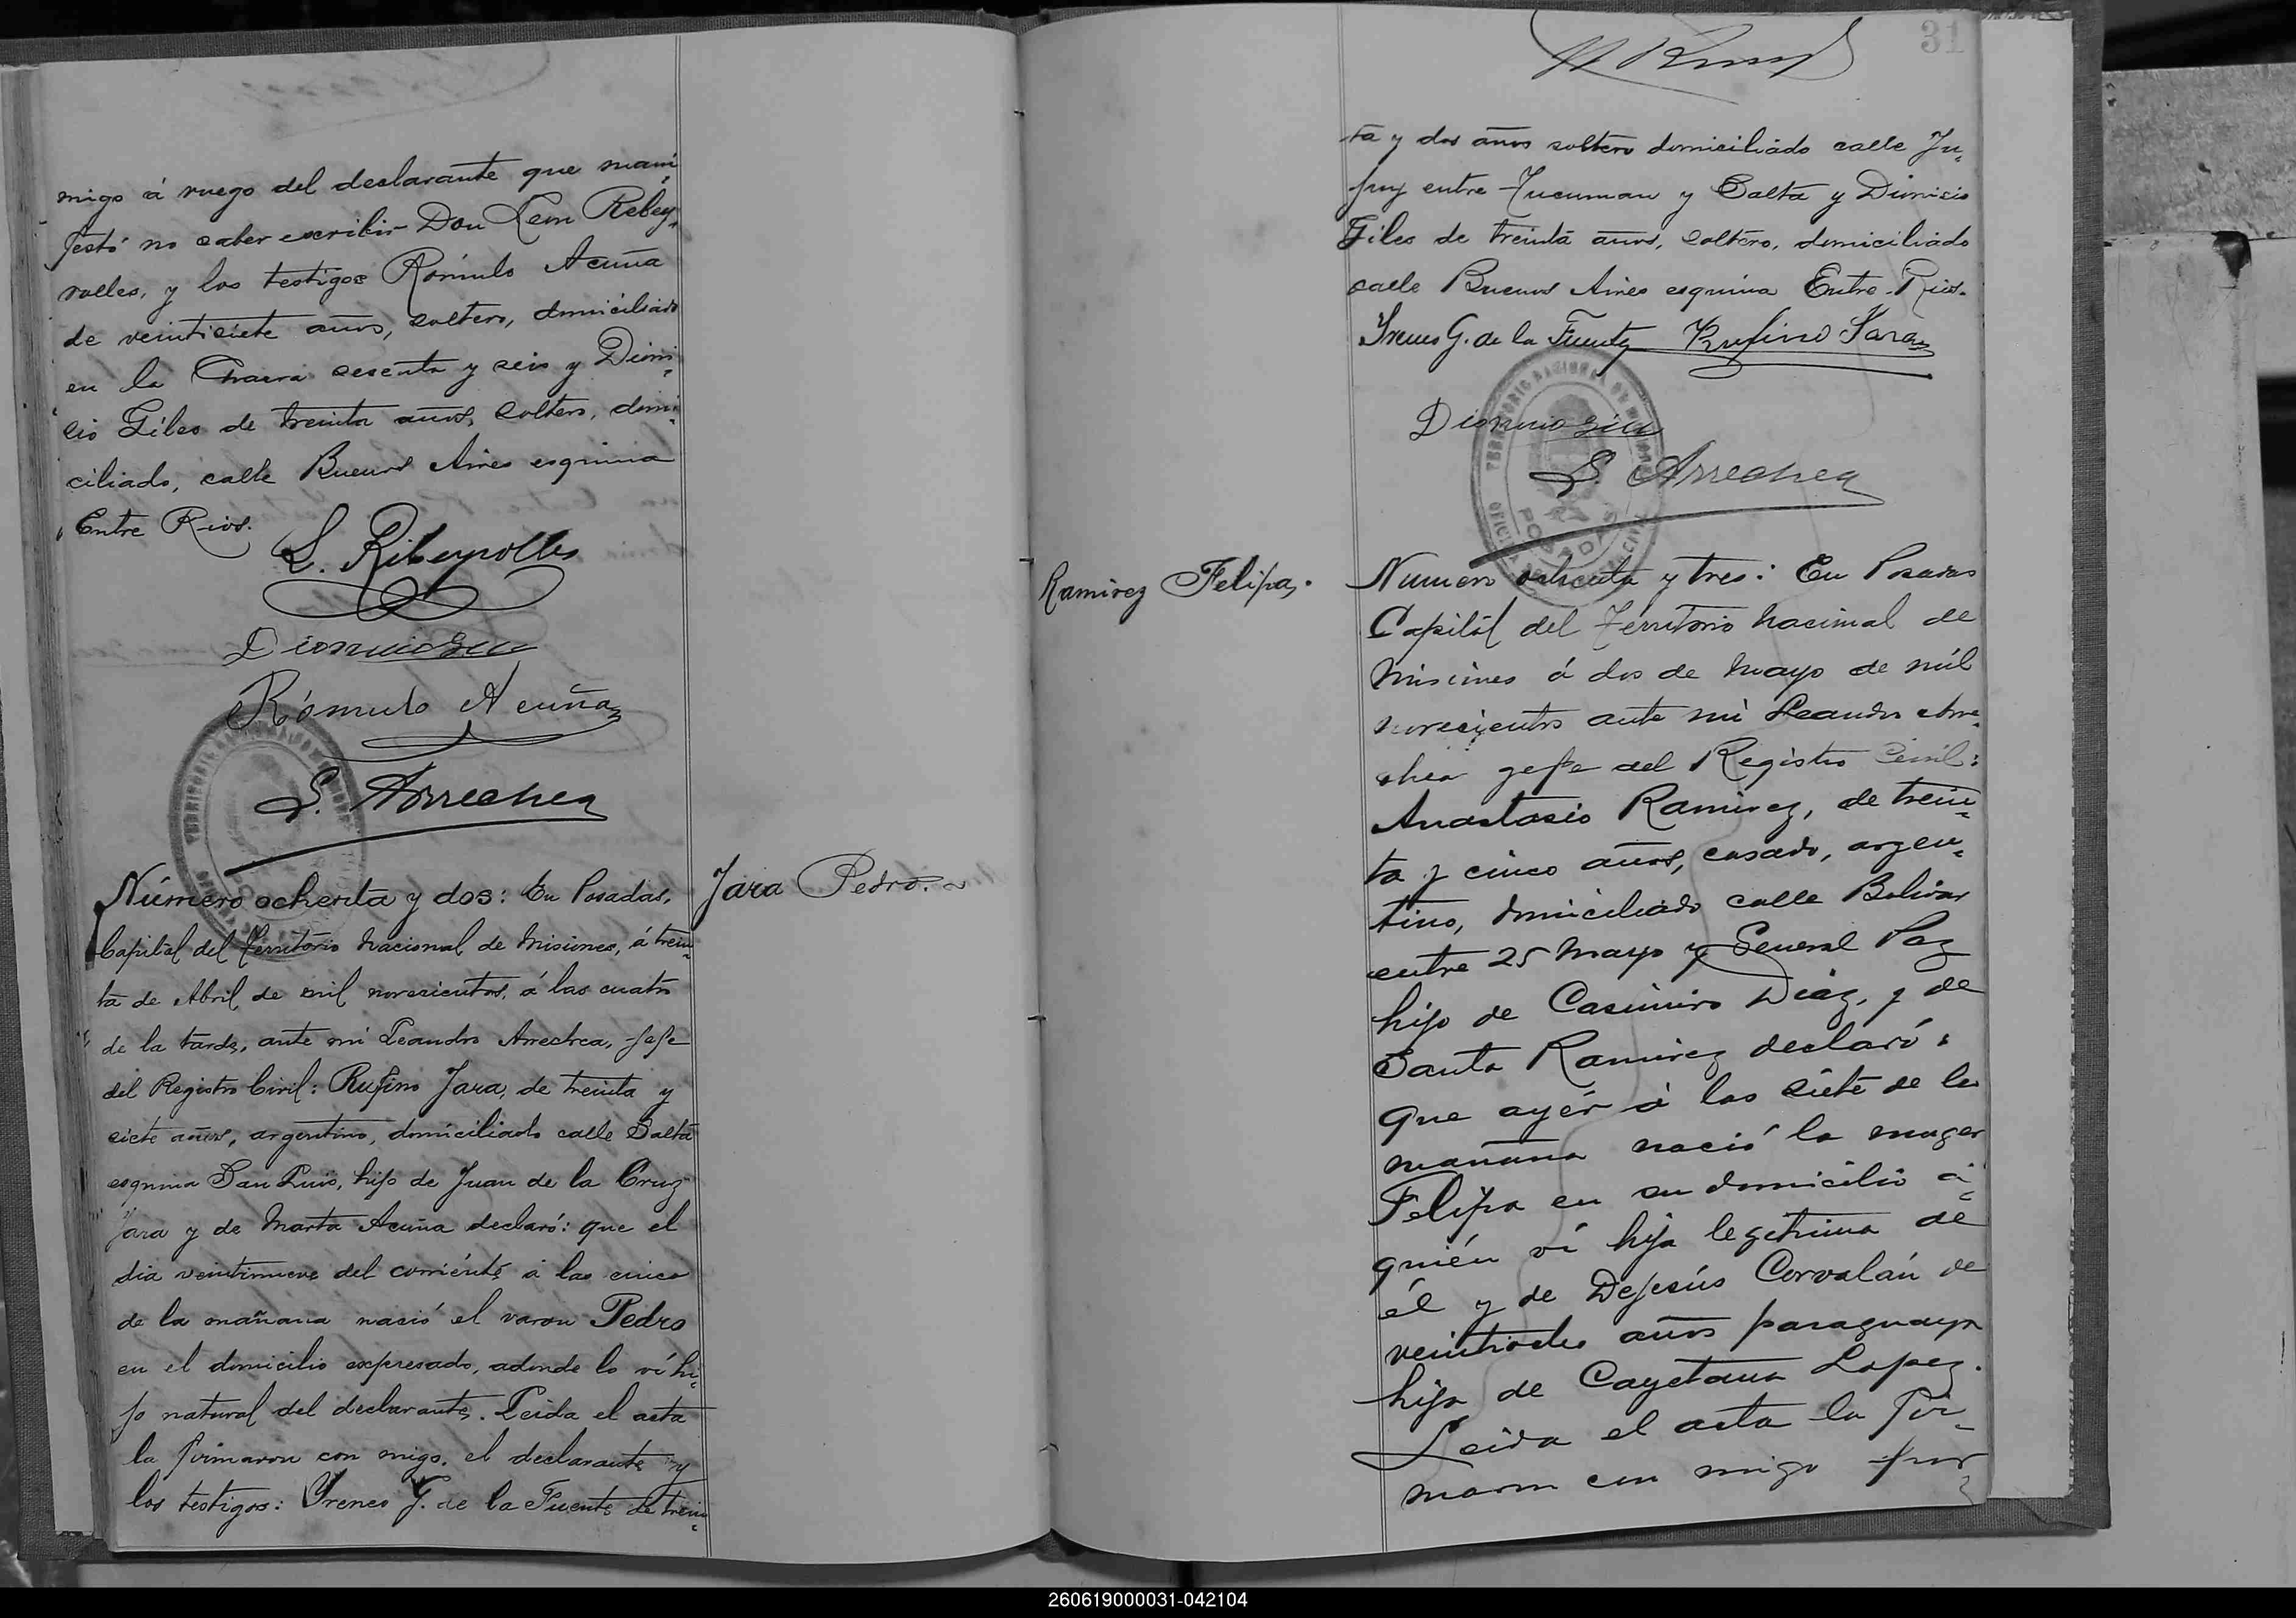 migo á ruego del declarante que mani-
festó no saber escribir Don Leon Ribey-
rolles, y los testigos Rómulo Acuña
de veintisiete años, soltero, domiciliado
en la Chacra sesenta y seis y Dioni-
cio Giles de treinta años, soltero, domi-
ciliado, calle Buenos Aires esquina
Entre Rios.
L. Ribeyrolles
Dionicio Giles
Rómulo Acuña
L. Arrechea
Número ochenta y dos: En Posadas,
Capital del Territorio Nacional de Misiones, á trein-
ta de Abril de mil novecientos, á las cuatro
de la tarde, ante mi Leandro Arrechea, Jefe
del Registro Civil: Rufino Jara, de treinta y
siete años, argentino, domiciliado calle Salta
esquina San Luis, hijo de Juan de la Cruz
Jara y de Marta Acuña declaró: que el
dia veintinueve del corriente á las cinco
de la mañana nació el varon Pedro
en el domicilio expresado, adonde lo ví hi-
jo natural del declarante. Leida el acta
la firmaron con migo, el declarante y
los testigos: Yreneo G. de la Fuente de trein-
Jara Pedro.
31
ta y dos años soltero domiciliado calle Ju-
juy entre Tucuman y Salta y Dionicio
Giles de treinta años, soltero, domiciliado
calle Buenos Aires esquina Entre-Rios.
Yreneo G. de la Fuente Rufino Jara
Dionicio Giles
TERRITORIO NACIONAL DE MISIONES
POSADAS
L. Arrechea
Ramirez Felipa.
Numero ochenta y tres: En Posadas
Capital del Territorio Nacional de
Misiones á dos de Mayo de mil
novecientos ante mi Leandro Arre-
chea gefe del Registro Civil:
Anastasio Ramirez, de trein-
ta y cinco años, casado, argen-
tino, domiciliado calle Bolivar
entre 25 Mayo y General Paz
hijo de Casimiro Diaz, y de
Santa Ramirez declaró:
que ayér á las siete de la
mañana nació la muger
Felipa en su domicilio á
quién ví hija legitima de
él y de Dejesús Corvalán de
veintiocho años paraguaya
hija de Cayetana Lopez.
Leida el acta la fir-
maron con migo por
260619000031-042104